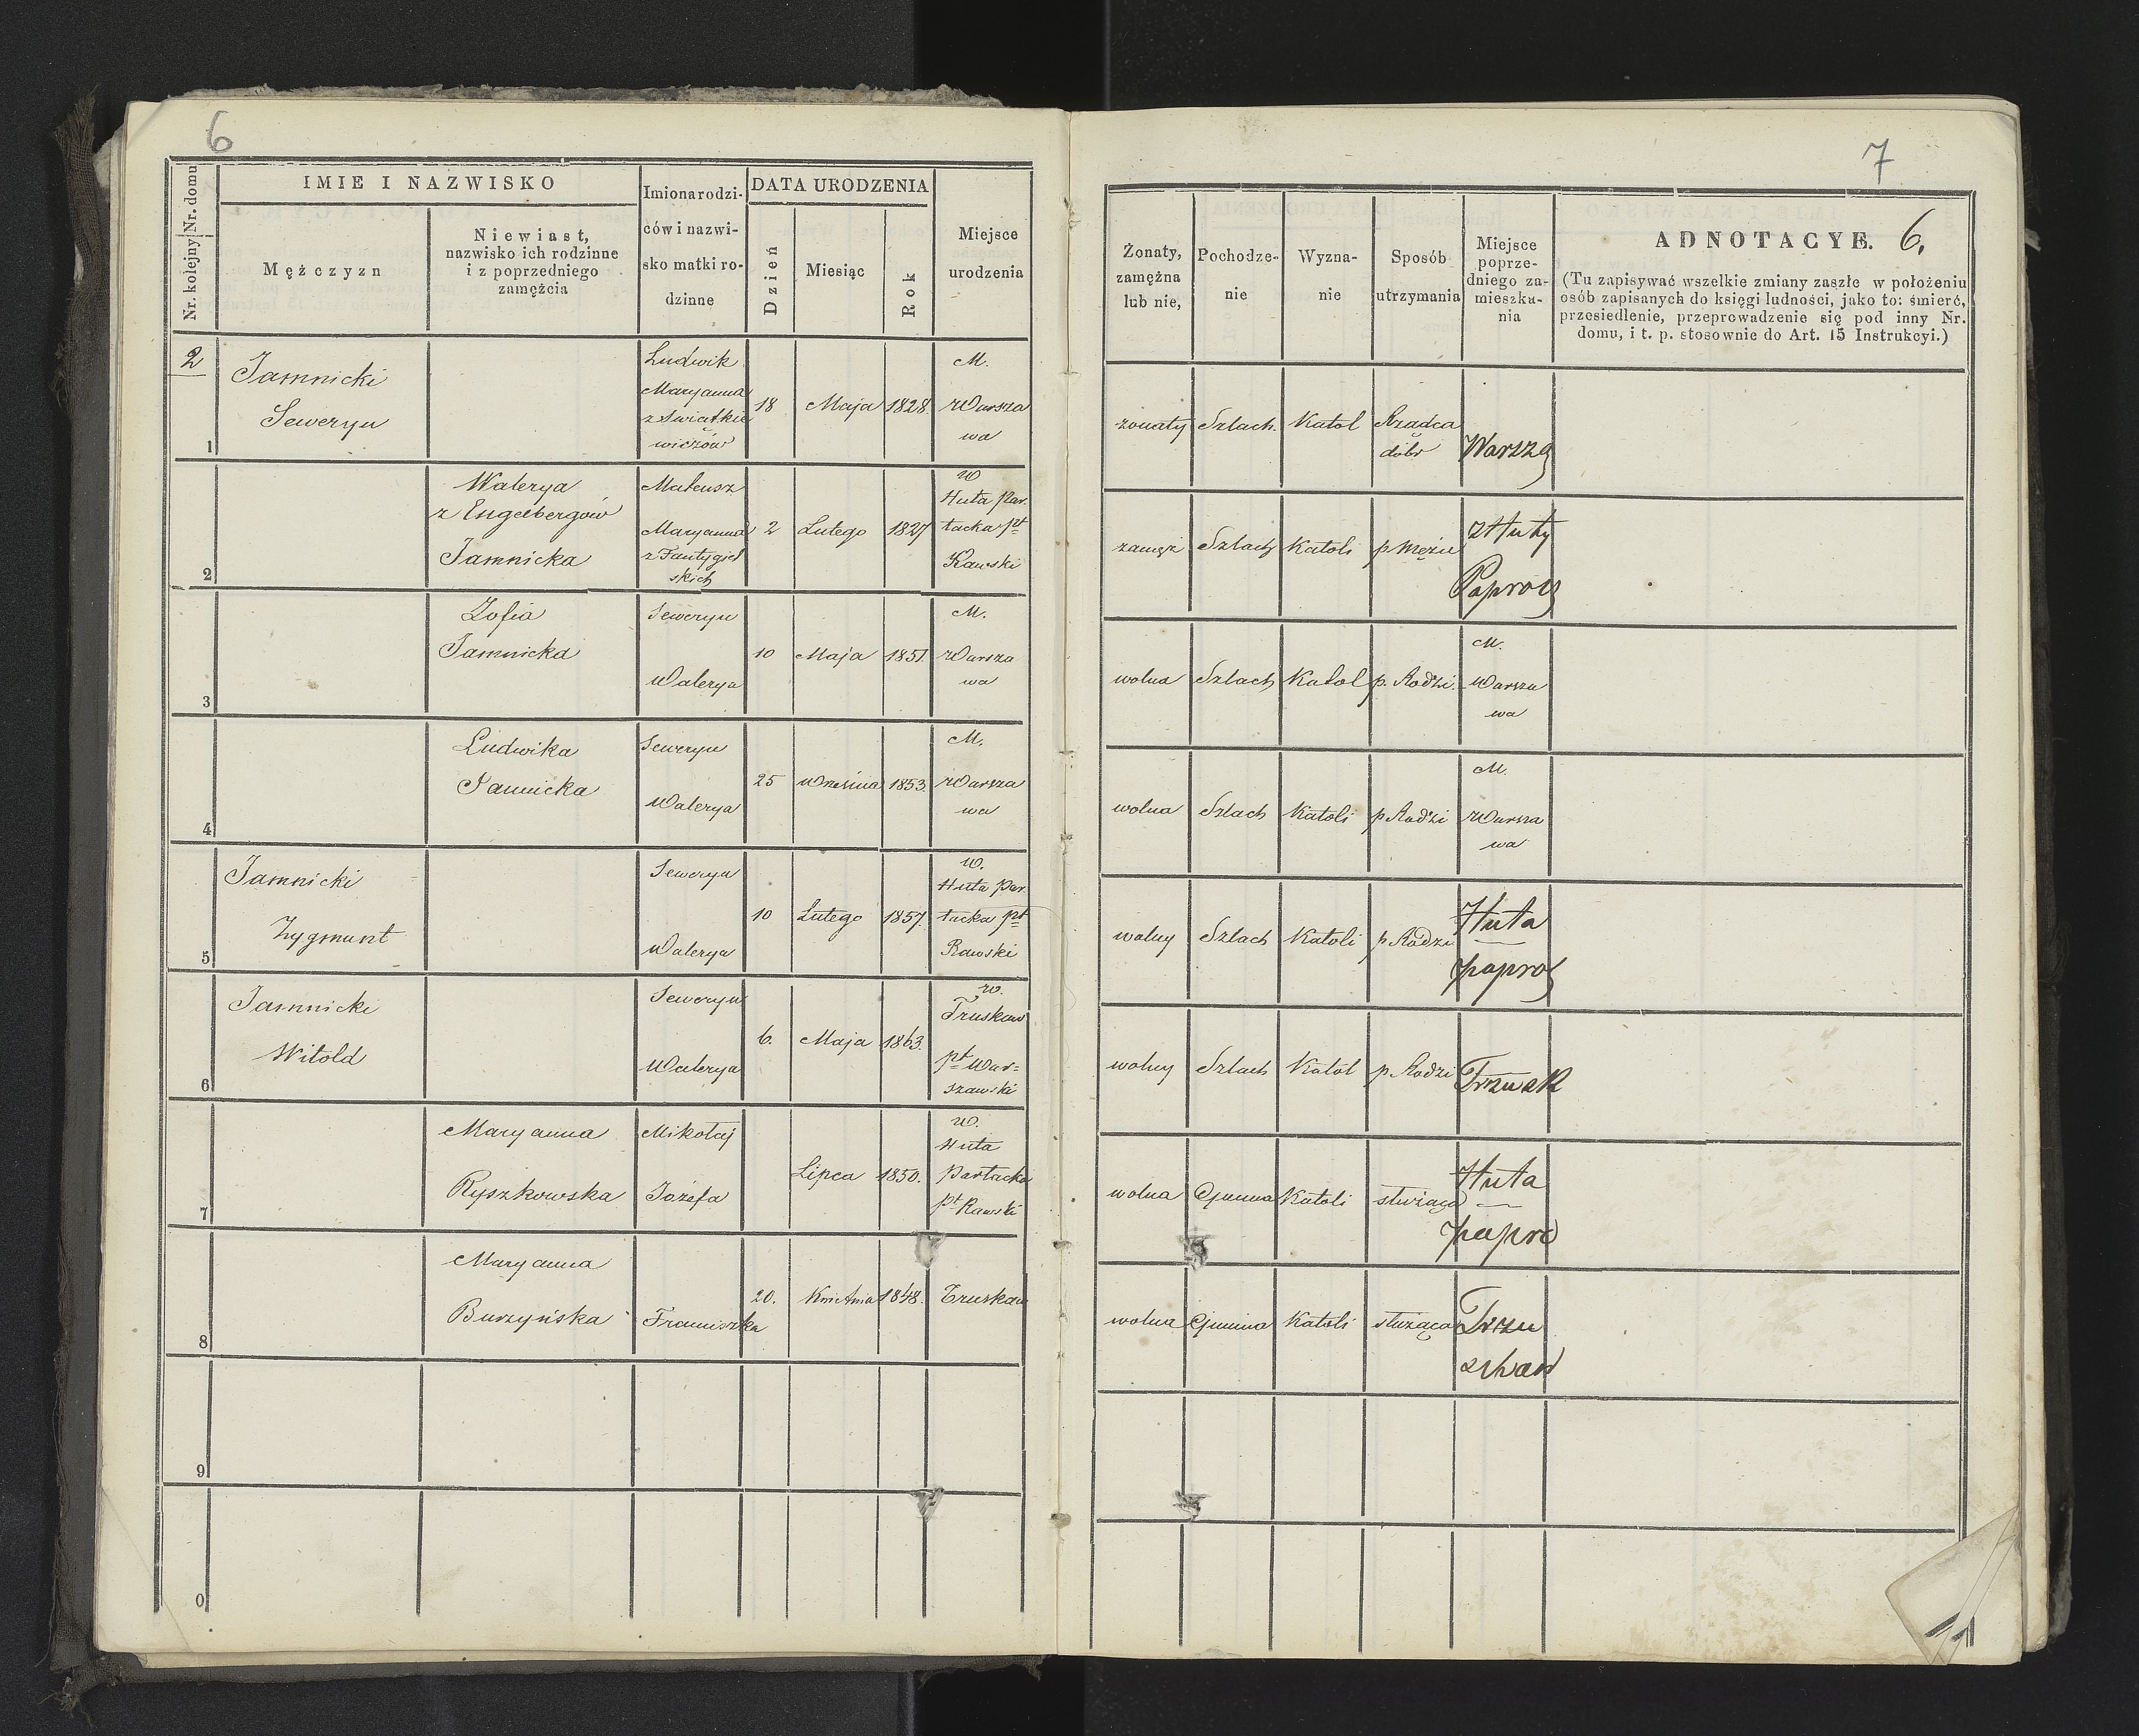 6
Nr. kolejny Nr. domu
IMIE I NAZWISKO
Mężczyzn
Niewiast,
nazwisko ich rodzinne
i z poprzedniego
zamężcia
Imiona rodzi-
ców i nazwi-
sko matki ro-
dzinne
DATA URODZENIA
Dzień
Miesiąc
Rok
Miejsce
urodzenia
2
1
Jamnicki
Seweryn
Ludwik
Maryanna
z Swiatkie
wiczów
18
Maja
1828.
M.
Warsza
wa
2
Walerya
z Engelbergów
Jamnicka
Mateusz
Maryanna
2
Lutego
1827
W
Huta Par.
tacka pt
Rawski
3
Zofia
Jamnicka
Seweryn
Walerya
10
Maja
1851.
M.
Warsza
wa
4
Ludwika
Jamnicka
Seweryn
Walerya
25
Wrześnía
1853.
M.
Warsza
wa
5
Jamnicki
Zygmunt
Seweryn
Walerya
10
Lutego
1857.
W.
Huta Par.
tacka pt
Rawski
6
Jamnicki
Witold
Seweryn
Walerya
6.
Maja
1863.
W.
Truskaw
pt War=
szawski
7
Maryanna
Ryszkowska
Mikołaj
Józefa
Lipca
1850.
W.
Huta
Partacka
pt Rawski
8
Maryanna
Burzyńska
Franciszka
20.
Kwietnia
1848.
Truskaw
9
0
7
Żonaty,
zamężna
lub nie,
Pochodze-
nie
Wyzna-
nie
Sposób
utrzymania
Miejsce
poprze-
dniego za-
mieszka-
nia
ADNOTACYE. 6.
(Tu zapisywać wszelkie zmiany zaszłe w położeniu
osób zapisanych do księgi ludności, jako to: śmierć,
przesiedlenie, przeprowadzenie się pod inny Nr.
domu, i t. p. stosownie do Art. 15 Instrukcyi.)
żonaty
Szlach.
Katol
Rządca
dóbr
Warsza
zamęż
Szlach
Katoli
p mężu
z Huty
Paproc
wolna
Szlach
Katol
p. Rodzi.
M.
Warsza
wa
wolna
Szlach
Katoli
p Rodzi
M.
Warsza
wa
wolny
Szlach
Katoli
p Rodzi
Huta
papro
wolny
Szlach
Katol
p Rodzi
wolna
Gminna
Katoli
służąca
Huta
papro
wolna
Gminna
Katoli
służąca